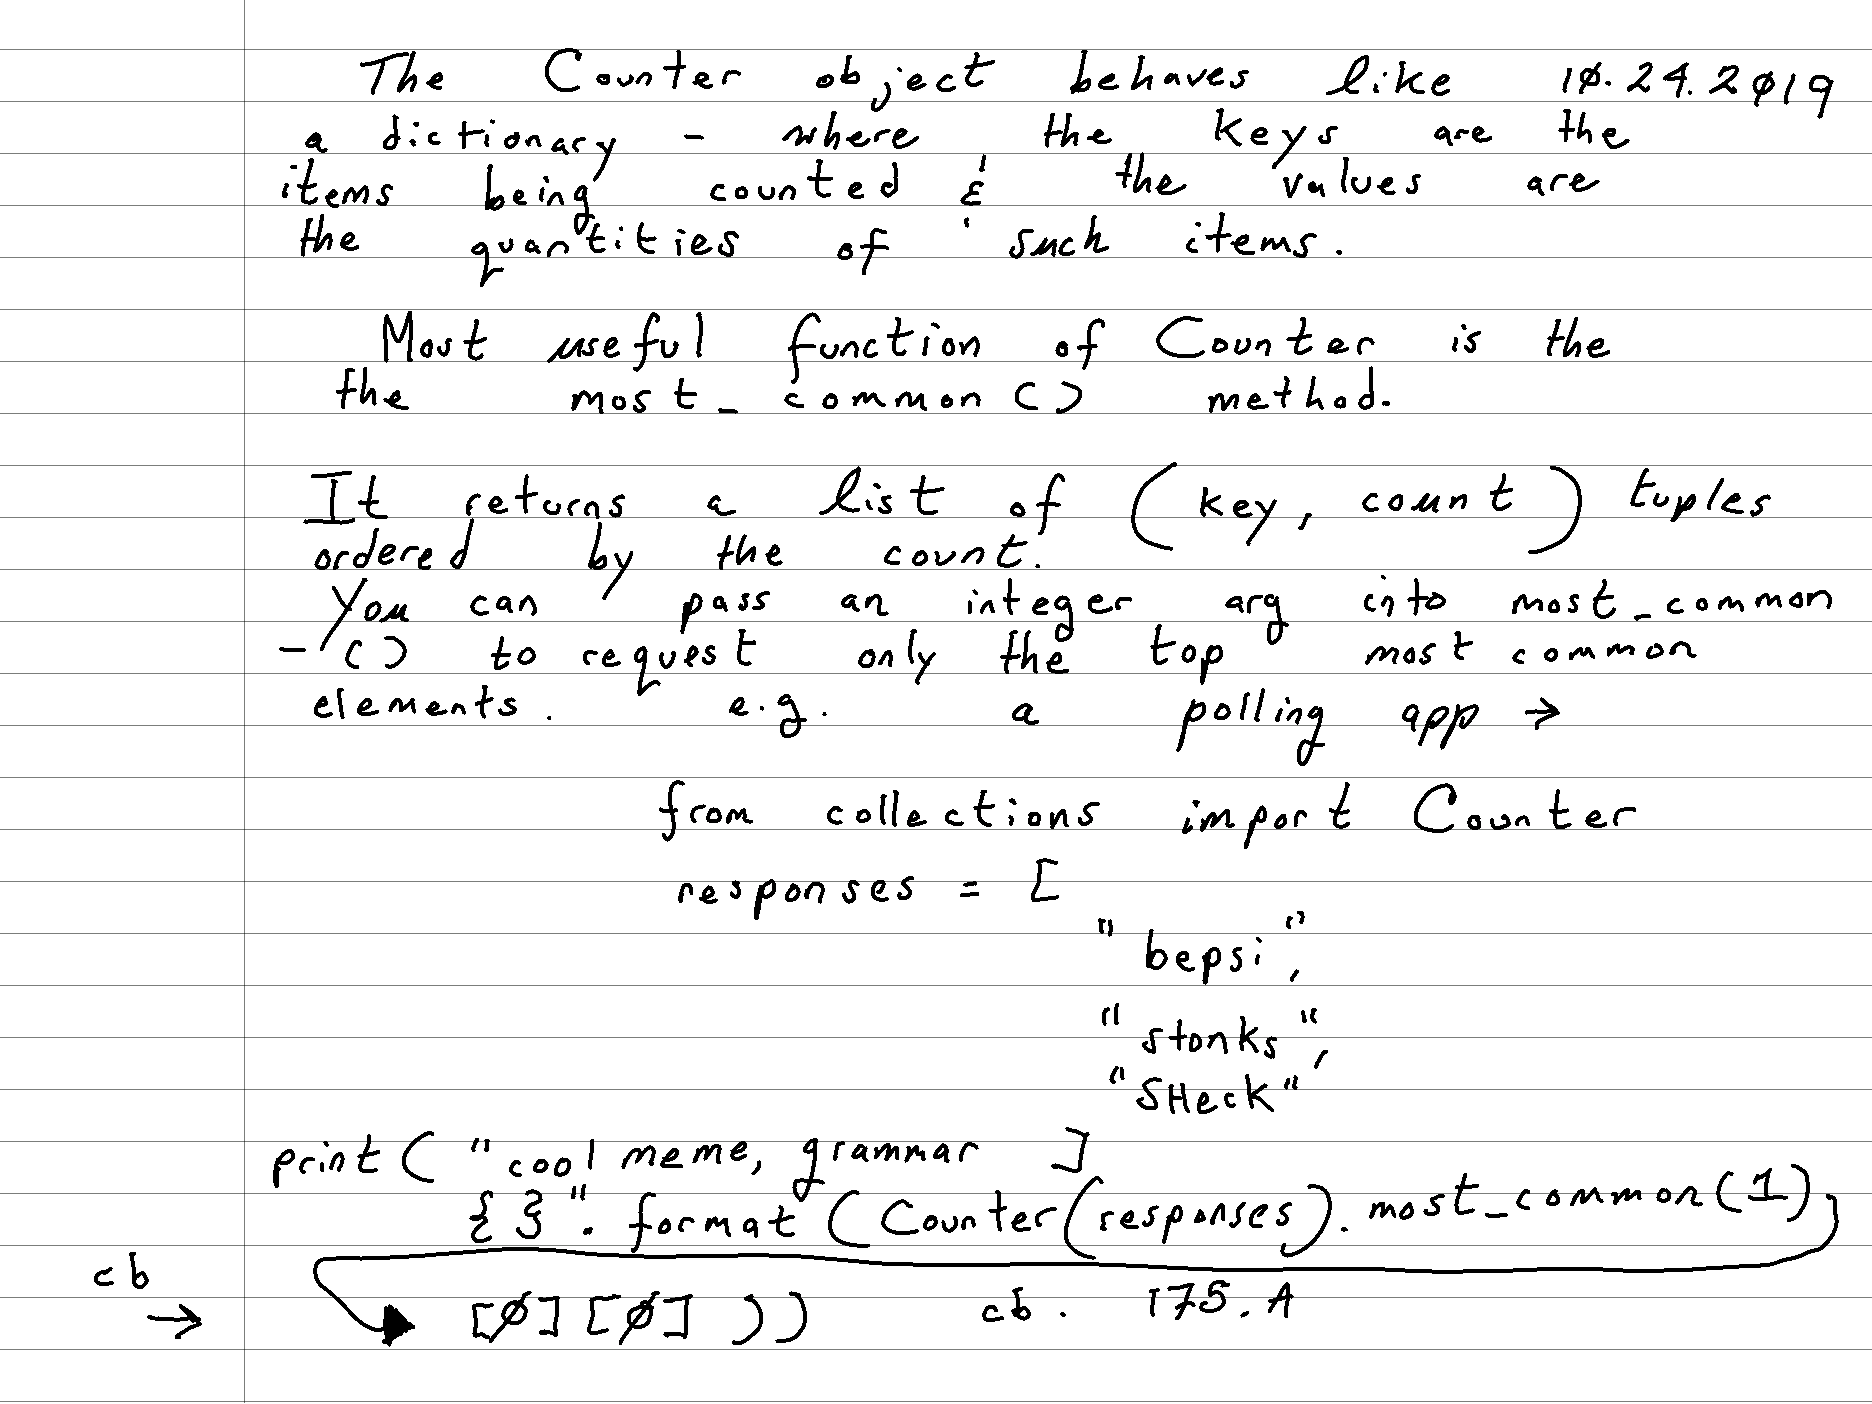 The Counter object behaves like 10.24.2019
a dictionary - where the keys are the
items being counted & the values are
the quantities of such items.
Most useful function of Counter is the
the most_common() method.
It returns a list of (key, count) tuples
ordered by the count.
You can pass an integer arg into most_common
-() to request only the top most common
elements. e.g. a polling app →
from collections import Counter
responses = [
"bepsi",
"stonks",
"SHeck"
]
print("cool meme, grammar
{}".format(Counter(responses).most_common(1)
cb → [0][0])) cb. 175.A